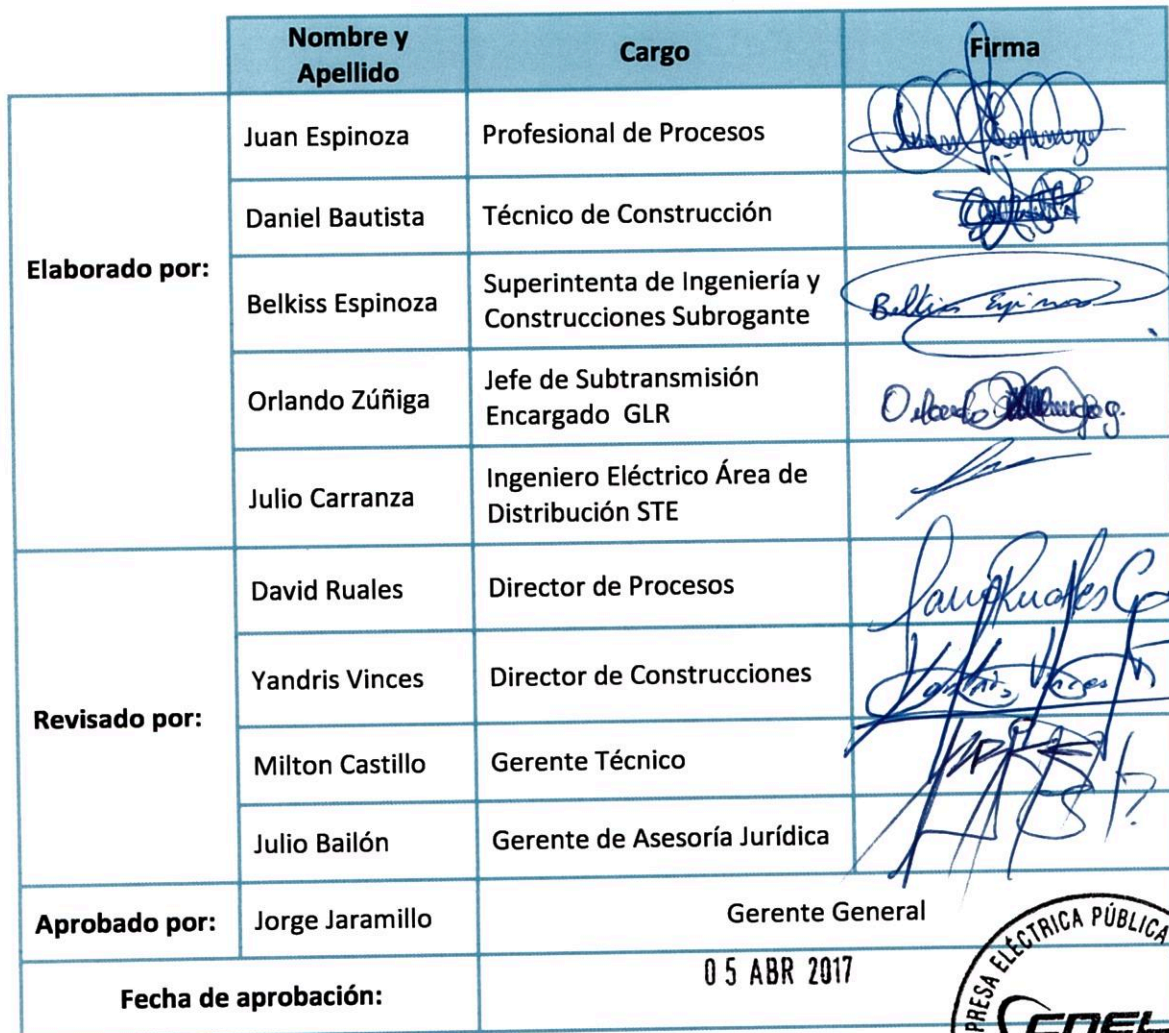 Nombre y
Apellido
Cargo
Firma
Elaborado por:
Juan Espinoza
Profesional de Procesos
Juan Espinoza
Daniel Bautista
Técnico de Construcción
Belkiss Espinoza
Superintenta de Ingeniería y
Construcciones Subrogante
Belkiss Espinoza
Orlando Zúñiga
Jefe de Subtransmisión
Encargado GLR
Orlando
Julio Carranza
Ingeniero Eléctrico Área de
Distribución STE
Revisado por:
David Ruales
Director de Procesos
Yandris Vinces
Director de Construcciones
Yandris Vinces
Milton Castillo
Gerente Técnico
Julio Bailón
Gerente de Asesoría Jurídica
Aprobado por:
Jorge Jaramillo
Gerente General
Fecha de aprobación:
05 ABR 2017
PRESA ELÉCTRICA PÚBLICA
CNEL